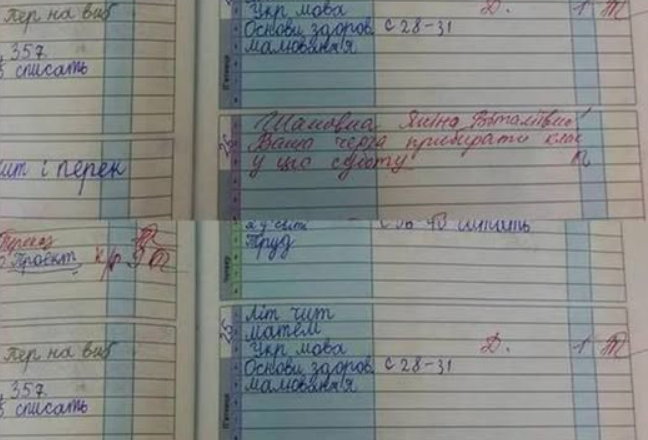 Пер на виб
357
списать
Укр мова Д. 1
Основи здоров. с 28-31
малювання
Шановна Яніно Віталіївно!
Ваша черга прибирати клас
у цю суботу
і перек
Проект к/р
с 36-40 читать
Труд
Літ чит
матем
Укр мова Д. 1
Основи здоров. с 28-31
малювання
Пер на виб
357
списать